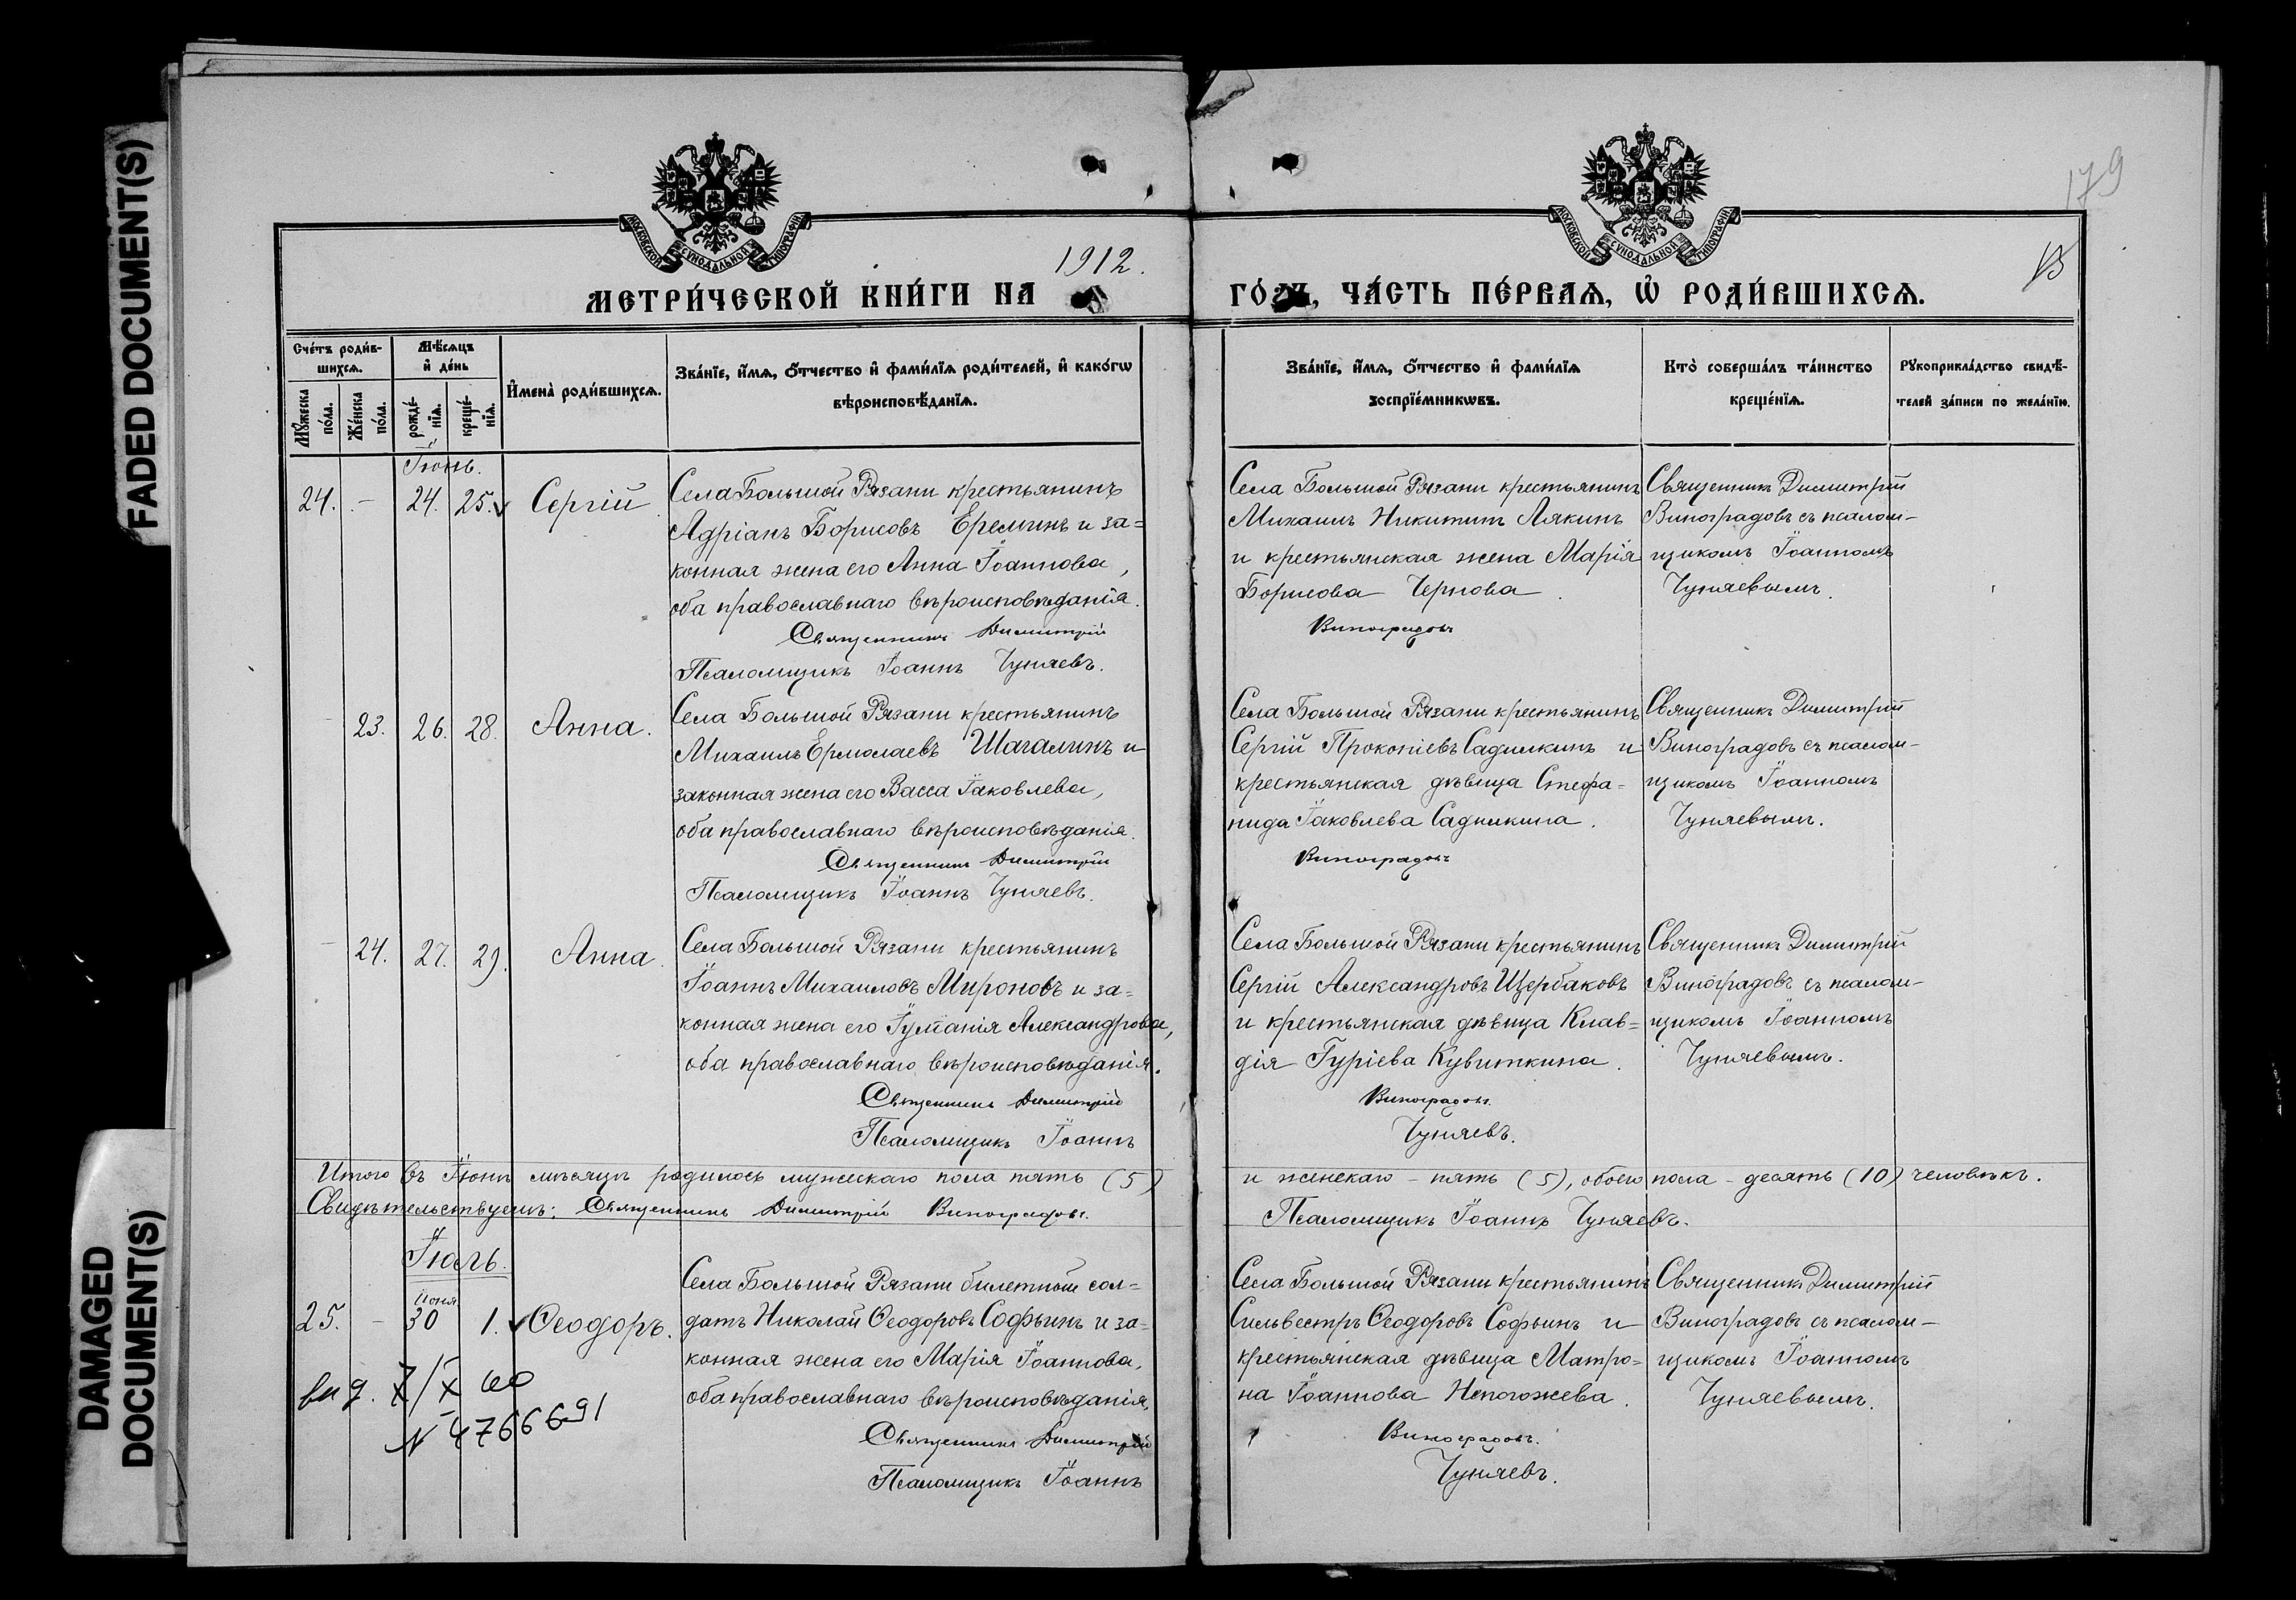 FADED DOCUMENT(S)
DAMAGED
DOCUMENT(S)
179
13
МОСКОВСКОЙ СУНОДАЛЬНОЙ ТИПОГРАФІИ
МОСКОВСКОЙ СУНОДАЛЬНОЙ ТИПОГРАФІИ
1912.
МЕТРИ́ЧЕСКОЙ КНИ́ГИ НА
ГО́ДЪ, ЧА́СТЬ ПЕ́РВАЯ, Ѡ РОДИ́ВШИХСЯ.
Сче́тъ роди́в-
шихся.
Мѣ́сяцъ
и҆ де́нь
Мꙋ́жеска
по́ла.
Же́нска
по́ла.
рожде́-
нїя.
креще́-
нїя.
И҆мена̀ роди́вшихся.
Зва́нїе, и҆́мя, о҆́тчество и҆ фами́лїя роди́телей, и҆ како́гѡ
вѣроисповѣ́данїя.
Зва́нїе, и҆́мя, о҆́тчество и҆ фами́лїя
воспрїе́мникѡвъ.
Кто̀ соверша́лъ та́инство
креще́нїя.
Рꙋкоприкла́дство свидѣ́-
телей за́писи по жела́нїю.
Іюнь.
24. - 24. 25. Сергій
Села Большой Рязани крестьянинъ
Адріанъ Борисовъ Еремин и за=
конная жена его Анна Іоаннова,
оба православнаго вѣроисповѣданія.
Священникъ Димитрій
Псаломщикъ Іоаннъ Чуняевъ.
Села Большой Рязани крестьянинъ
Михаилъ Никитинъ Лякинъ
и крестьянская жена Марія
Борисова Чернова.
Виноградовъ
Священникъ Димитрій
Виноградовъ съ псалом-
щикомъ Іоанномъ
Чуняевымъ.
- 23. 26. 28. Анна.
Села Большой Рязани крестьянинъ
Михаилъ Ермолаевъ Шагалинъ и
законная жена его Васса Іаковлева,
оба православнаго вѣроисповѣданія.
Священникъ Димитрій
Псаломщикъ Іоаннъ Чуняевъ.
Села Большой Рязани крестьянинъ
Сергій Прокопіевъ Садишкинъ и
крестьянская дѣвица Стефа-
нида Іаковлева Садишкина.
Виноградовъ
Священникъ Димитрій
Виноградовъ съ псалом-
щикомъ Іоанномъ
Чуняевымъ.
- 24. 27. 29. Анна.
Села Большой Рязани крестьянинъ
Іоаннъ Михаиловъ Мироновъ и за=
конная жена его Іуліанія Александрова,
оба православнаго вѣроисповѣданія.
Священникъ Димитрій
Псаломщикъ Іоаннъ
Села Большой Рязани крестьянинъ
Сергій Александровъ Щербаковъ
и крестьянская дѣвица Клав=
дія Гуріева Кувиткина.
Виноградовъ.
Чуняевъ.
Священникъ Димитрій
Виноградовъ съ псалом-
щикомъ Іоанномъ
Чуняевымъ.
Итого въ Іюнѣ мѣсяцѣ родилось мужескаго пола пять (5) и женскаго - пять (5), обоего пола - десять (10) человѣкъ.
Свидѣтельствуемъ: Священникъ Димитрій Виноградовъ. Псаломщикъ Іоаннъ Чуняевъ.
Іюль.
Іюня
25. - 30 1. Ѳеодоръ.
Села Большой Рязани билетный сол-
датъ Николай Ѳеодоровъ Софьинъ и за=
конная жена его Марія Іоаннова,
оба православнаго вѣроисповѣданія.
Священникъ Димитрій
Псаломщикъ Іоаннъ
Села Большой Рязани крестьянинъ
Сильвестръ Ѳеодоровъ Софьинъ и
крестьянская дѣвица Матро=
на Іоаннова Непогожева.
Виноградовъ.
Чуняевъ.
Священникъ Димитрій
Виноградовъ съ псалом-
щикомъ Іоанномъ
Чуняевымъ.
выд. 7/X 60
N 4766691